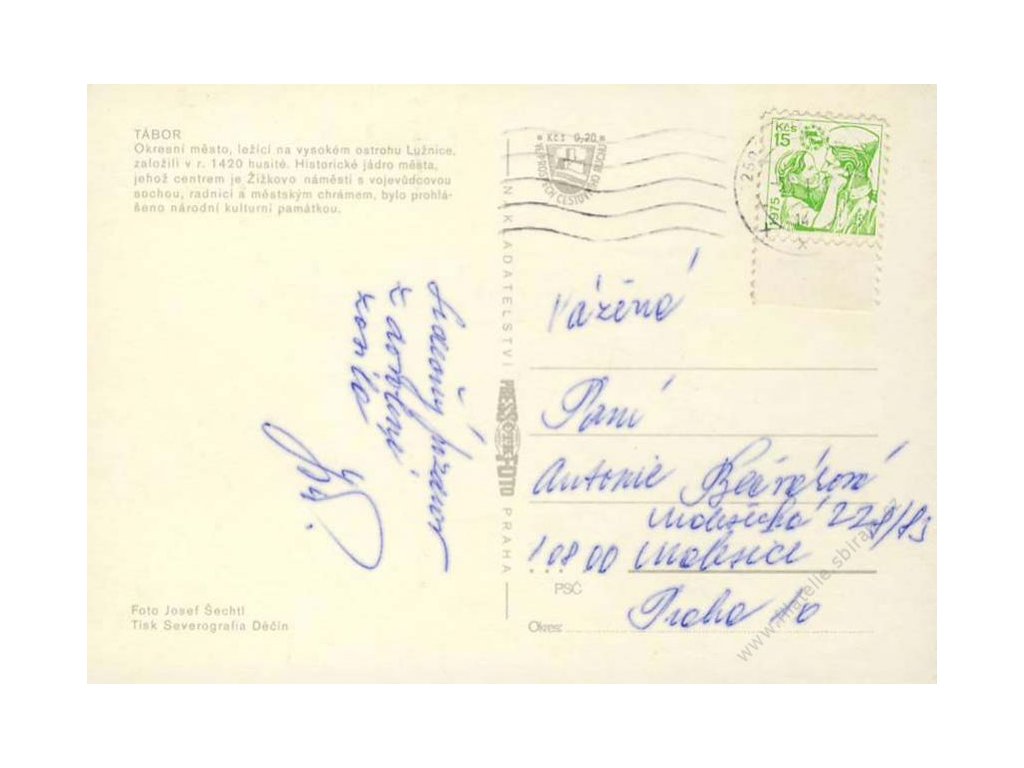 TÁBOR
Okresní město, ležící na vysokém ostrohu Lužnice,
založili v r. 1420 husité. Historické jádro města,
jehož centrem je Žižkovo náměstí s vojevůdcovou
sochou, radnicí a městským chrámem, bylo prohlá-
šeno národní kulturní památkou.
Srdečný pozdrav
z
Foto Josef Šechtl
Tisk Severografia Děčín
NAKLADATELSTVÍ PRESSFOTO PRAHA
Kčs 0,20
Kčs
15
1975
14
Vážená
Paní
Antonie Bečvářová
Malešická
10800 Malešice
PSČ
Praha 10
Okres:
www.filatelie.sbiram